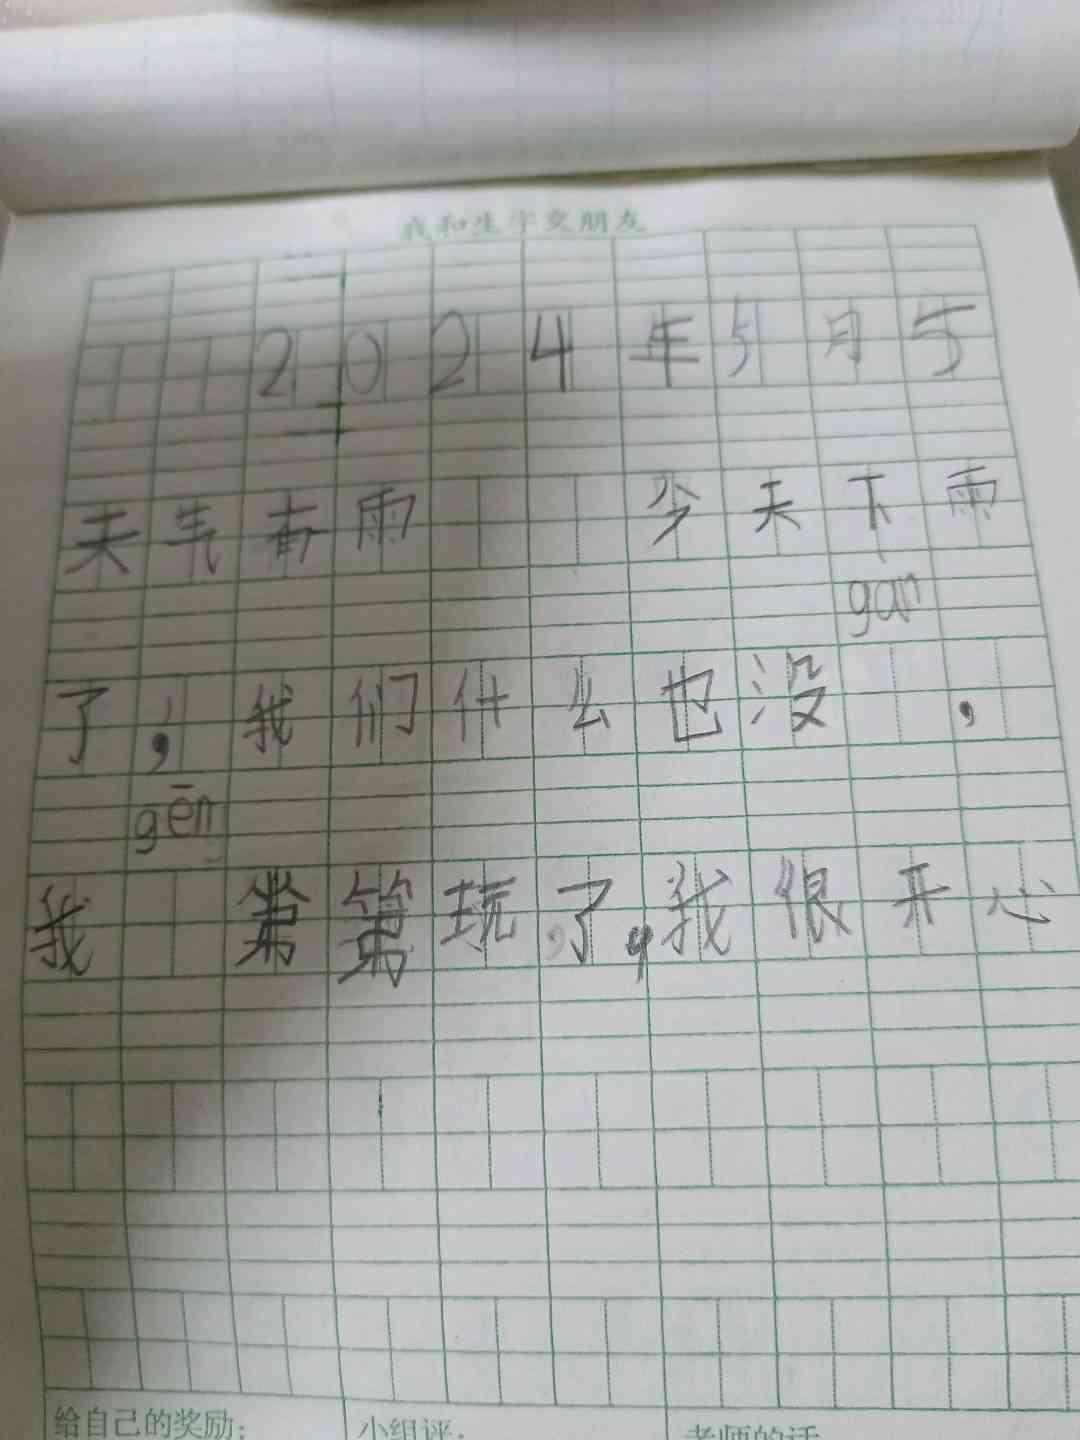 我和生字交朋友
2024年5月5
天气有雨 今天下雨
gan
了,我们什么也没 ,
gēn
我 弟第玩了,我很开心
给自己的奖励: 小组评: 老师的话